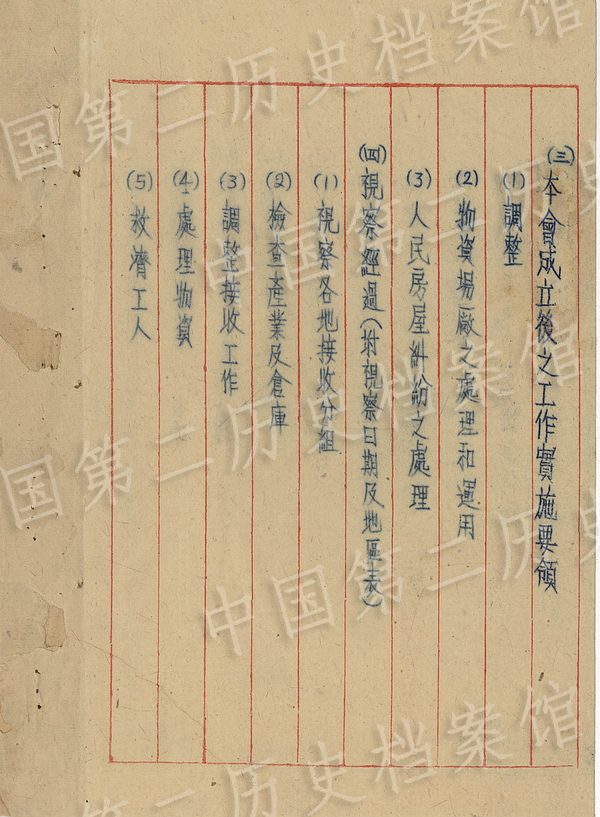 (三)本會成立後之工作實施要領
(1)調整
(2)物資場廠之處理和運用
(3)人民房屋糾紛之處理
(四)視察經過(附視察日期及地區表)
(1)視察各地接收分組
(2)檢查產業及倉庫
(3)調整接收工作
(4)處理物資
(5)救濟工人
中国第二历史档案馆